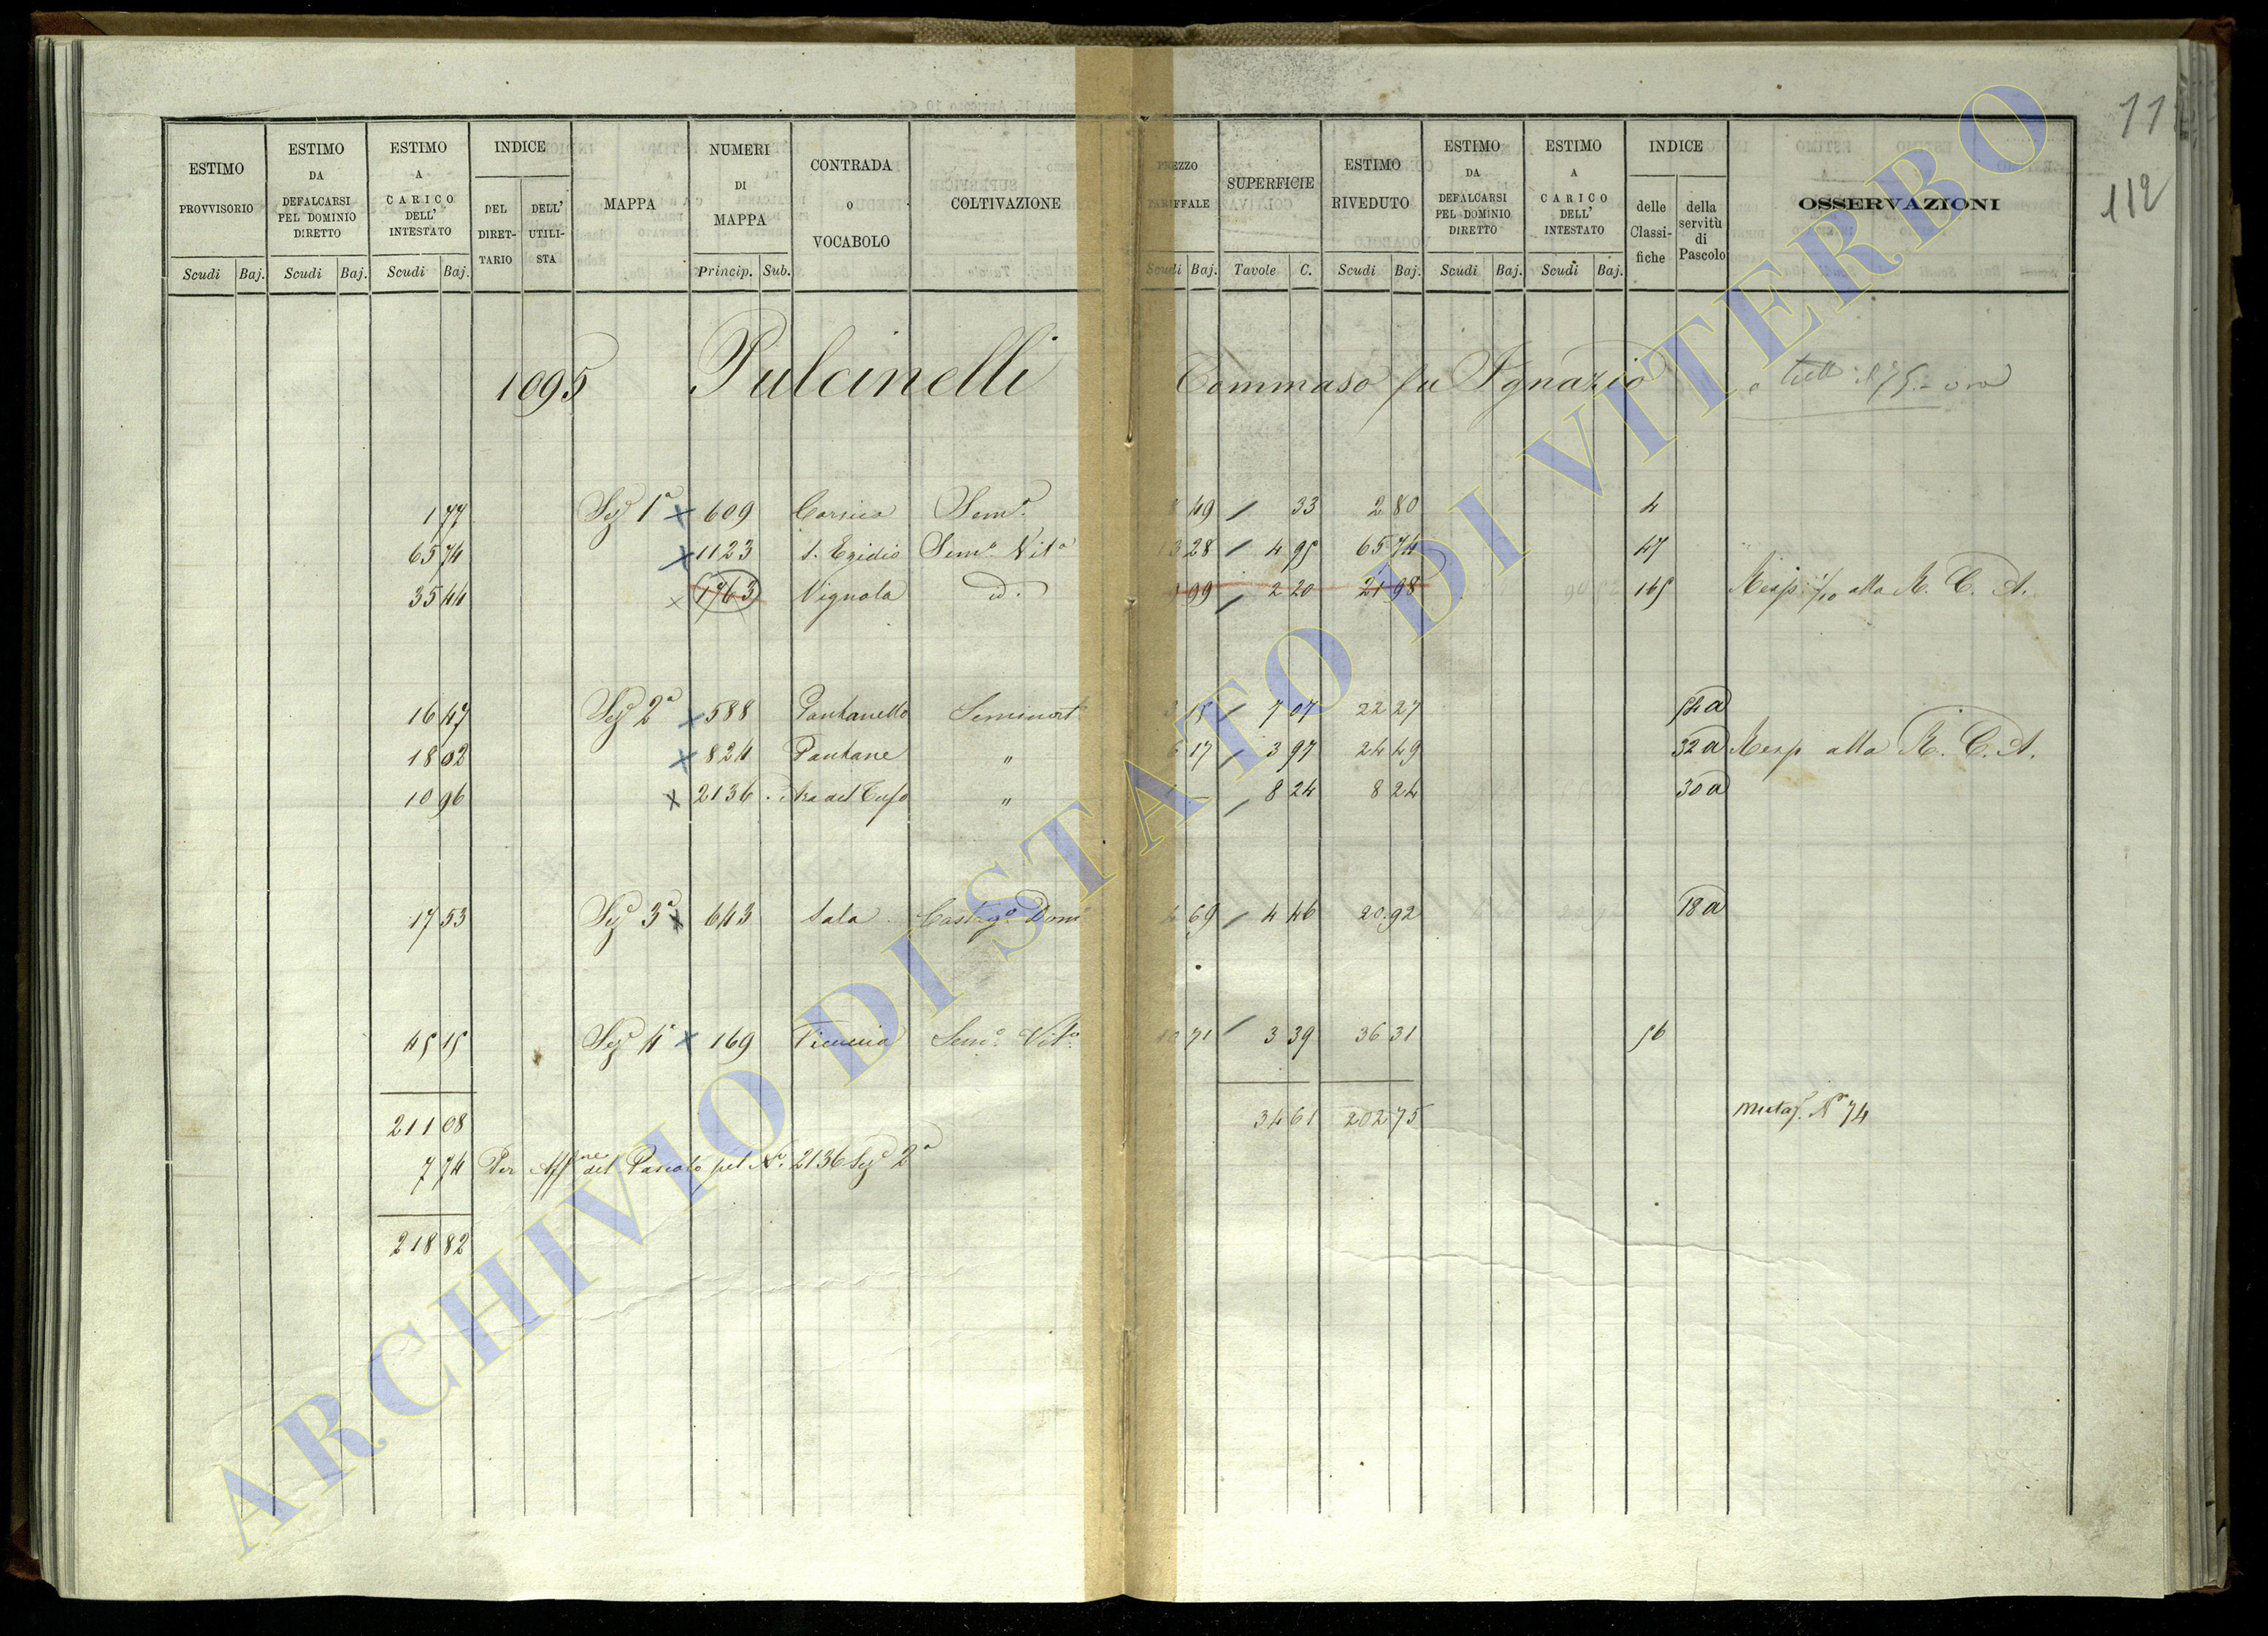 112
ESTIMO PROVVISORIO
ESTIMO DA DEFALCARSI PEL DOMINIO DIRETTO
ESTIMO A CARICO DELL' INTESTATO
INDICE
DEL DIRETTARIO
DELL' UTILISTA
MAPPA
NUMERI DI MAPPA
CONTRADA O VOCABOLO
COLTIVAZIONE
PREZZO TARIFFALE
SUPERFICIE
ESTIMO RIVEDUTO
ESTIMO DA DEFALCARSI PEL DOMINIO DIRETTO
ESTIMO A CARICO DELL' INTESTATO
INDICE
delle Classifiche
della servitù di Pascolo
OSSERVAZIONI
Scudi Baj. Scudi Baj. Scudi Baj. Princip. Sub. Scudi Baj. Tavole C. Scudi Baj. Scudi Baj. Scudi Baj.
1095 Pulcinelli Tommaso fu Ignazio
1 77 Sez 1ª x 609 Corsica Sem.º 49 / 33 2 80 4
65 74 x 1123 S. Egidio Sem.º Vit.º 13 28 / 4 95 65 74 47
35 44 x 1763 Vignola d. 99 / 2 20 21 98 165 Resp. 1/10 alla R. C. A.
16 47 Sez 2ª x 588 Pantanello Seminat. 15 / 7 07 22 27 54 a
18 02 x 824 Pantane " 6 17 / 3 97 24 49 32 a Resp alla R. C. A.
10 96 x 2136 Ara del Tufo " — / 8 24 8 24 30 a
17 53 Sez 3ª x 643 Sala Castag.º Dom 4 69 / 4 46 20 92 18 a
45 15 Sez 4ª x 169 Sem.º Vit.º 10 71 / 3 39 36 31 56
211 08 34 61 202 75 Mutaz. Nº 74
7 74 Per Aff.ne del Pascolo pel Nº 2136 Sez 2ª
218 82
ARCHIVIO DI STATO DI VITERBO